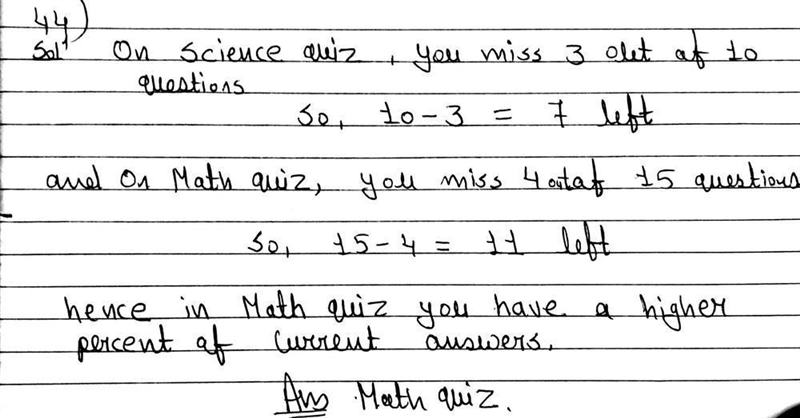 44)
Sol¹ On Science quiz, you miss 3 out of 10
questions
So, 10-3 = 7 left
and On Math quiz, you miss 4 out of 15 questions
So, 15-4 = 11 left
hence in Math quiz you have a higher
percent of current answers.
Ans Math quiz.